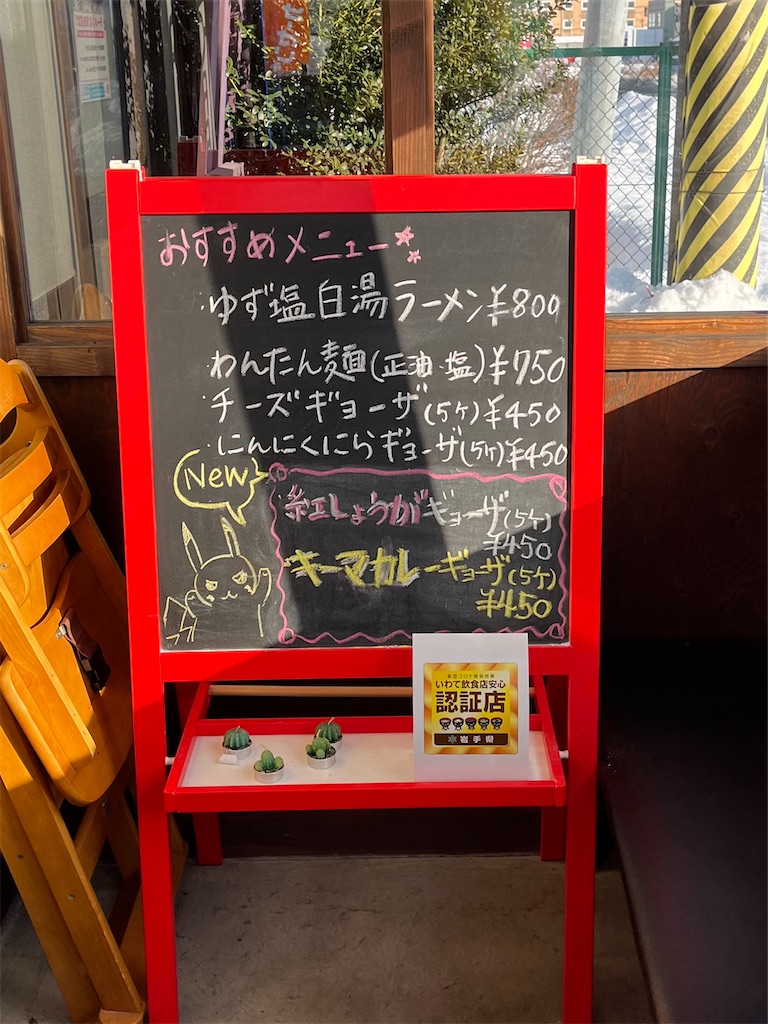 おすすめメニュー
・ゆず塩白湯ラーメン¥800
・わんたん麺(正油・塩)¥750
・チーズギョーザ(5ケ)¥450
・にんにくにらギョーザ(5ケ)¥450
New
紅しょうがギョーザ(5ケ)
¥450
キーマカレーギョーザ(5ケ)
¥450
いわて飲食店安心
認証店
岩手県